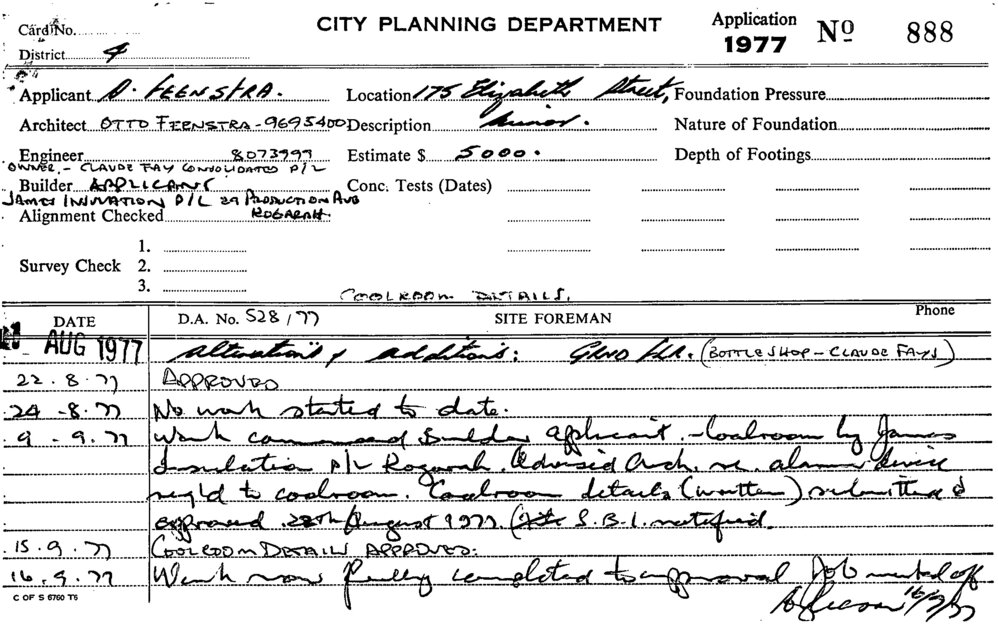 CITY PLANNING DEPARTMENT
Application 1977 Nº 888
Card No.
District 4
Applicant O. FEENSTRA. Location 175 Elizabeth Street, Foundation Pressure
Architect OTTO FEENSTRA - 9695400 Description Minor. Nature of Foundation
Engineer 8073999 Estimate $ 5000. Depth of Footings
OWNER - CLAUDE FAY CONSOLIDATED P/L
Builder APPLICANT Conc. Tests (Dates)
JAMES INSULATION P/L 29 PRODUCTION AVE
Alignment Checked KOGARAH.
1.
Survey Check 2.
3.
COOLROOM DETAILS.
DATE D.A. No. 528/77 SITE FOREMAN Phone
AUG 1977 Alterations & additions: GRND FLR. (BOTTLESHOP - CLAUDE FAYS)
22.8.77 APPROVED
24-8.77 No work started to date.
9-9.77 Work commenced Builder applicant. - Coolroom by James
Insulation P/L Kogarah. Advised Arch. re. alarm device
req'd to coolroom. Coolroom details (written) submitted &
approved 22nd August 1977. S.B.I. notified.
15.9.77 COOLROOM DETAILS APPROVED.
16.9.77 Work now fully completed to approval Job marked off
16/9/77
C OF S 6760 T6